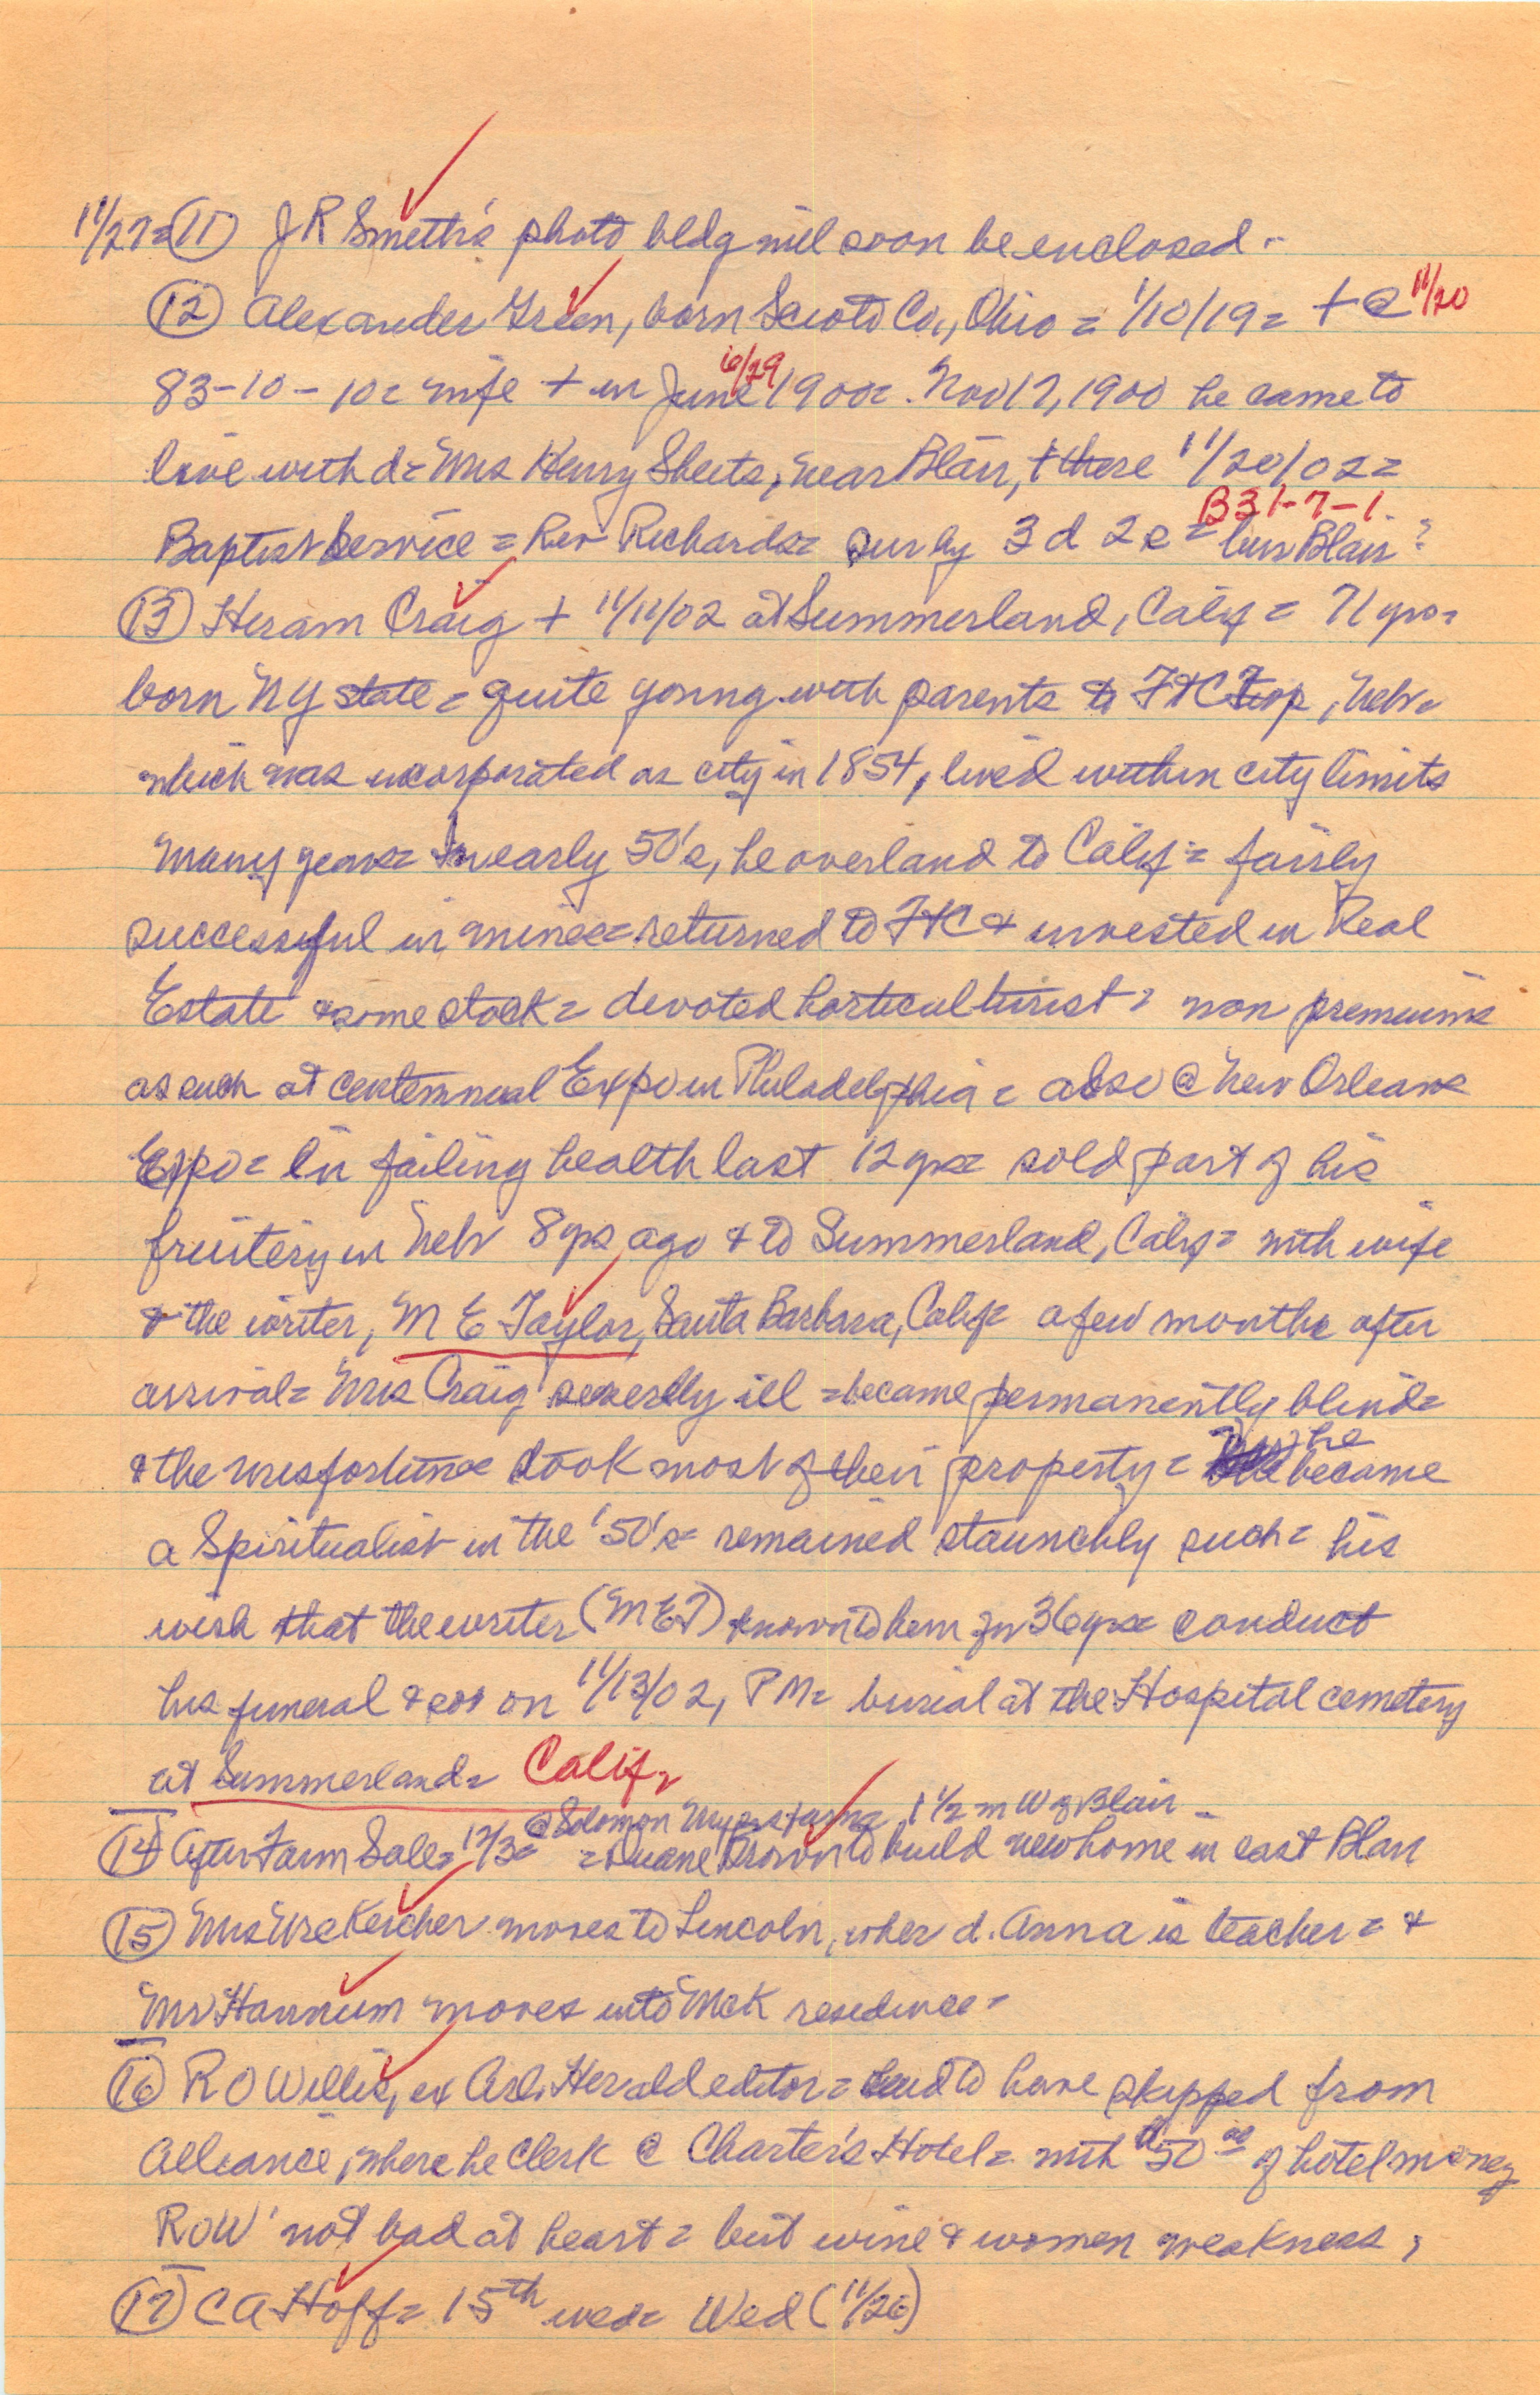 11/27= (11) J R Smith's photo bldg will soon be enclosed -
(12) Alexander Green, born Scioto Co., Ohio = 1/10/19 = + @ 11/20
83-10-10 = wife + in June 10/29 1900 = Nov 17, 1900 he came to
live with d = Mrs Henry Sheets, near Blair, + there 11/20/02 =
Baptist Service = Rev Richards = surv by 3 d 2 s = bur Blair ?
B31-7-1
(13) Hiram Craig + 11/11/02 at Summerland, Calif = 71 yrs =
born NY state = quite young with parents to FtC Twp, Nebr =
which was incorporated as city in 1854, lived within city limits
many years = In early 50's, he overland to Calif = fairly
successful in mines = returned to FtC & invested in Real
Estate & some stock = devoted horticulturist = won premiums
as such at Centennial Expo in Philadelphia = also @ New Orleans
Expo = In failing health last 12 yrs = sold part of his
fruitery in Nebr 8 yrs ago & to Summerland, Calif = with wife
& the writer, M E Taylor, Santa Barbara, Calif = a few months after
arrival = Mrs Craig severely ill = became permanently blind =
& the misfortune took most of their property = he became
a Spiritualist in the '50's = remained staunchly such = his
wish that the writer (MET) known to hem for 36 yrs = conduct
his funeral & so on 11/13/02, PM = burial at the Hospital cemetery
at Summerland = Calif,
(14) After Farm Sale = 12/3 = @ Solomon Myers farm = 1 1/2 m W of Blair -
= Duane Brown to build new home in east Blair
(15) Mrs Kercher moves to Lincoln, wher d. Anna is teacher = &
Mr Hannum moves into McK residence =
(16) R O Willis, ex Arl. Herald editor = said to have skipped from
Alliance, where he Clerk @ Charter's Hotel = with $50 00 of hotel money
ROW' not bad at heart = but wine & women weakness,
(17) C A Hoff = 15th wed = Wed (11/26)